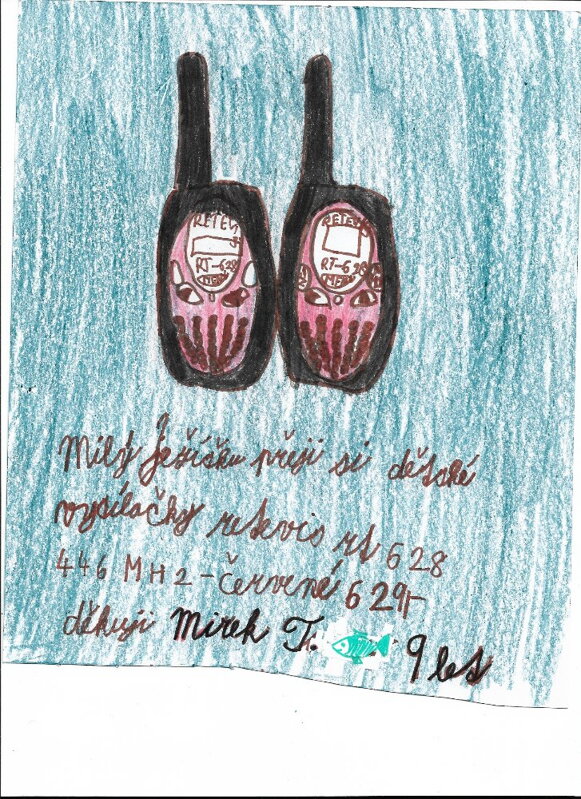 RETEVIS RETEVIS
RT-628 RT-628
MENU MENU
Milý Ježíšku přeji si dětské
vysílačky retevis rt 628
446 MHz - červené 629,-
děkuji Mirek T. 9 let